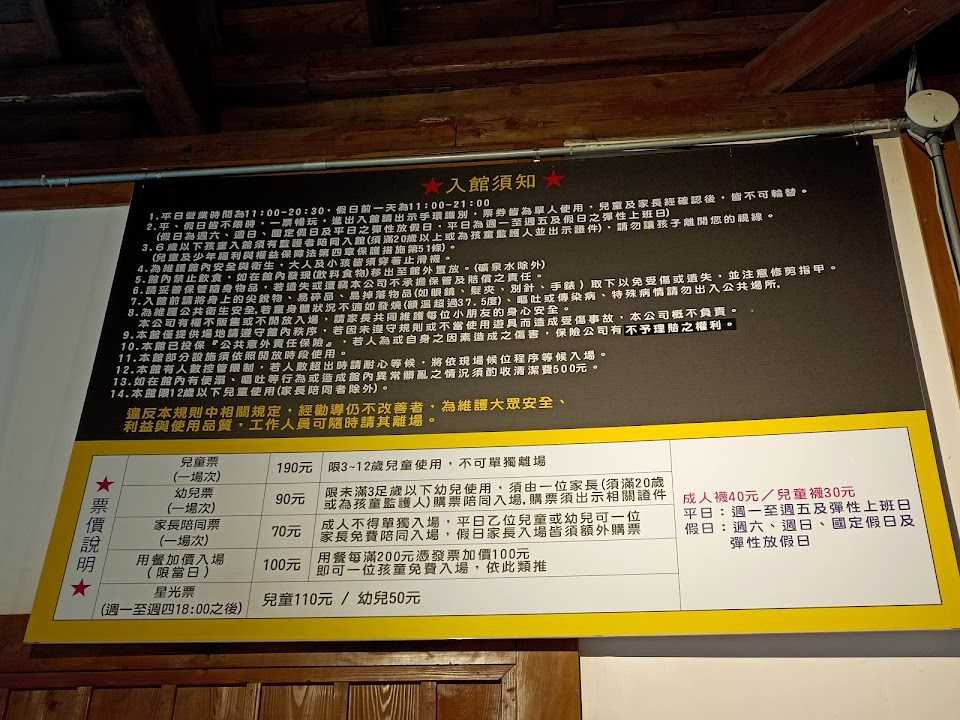 ★入館須知★
1.平日營業時間為11:00-20:30，假日前一天為11:00-21:00
2.平、假日皆不限時，一票暢玩，進出入館請出示手環識別，票券皆為單人使用，兒童及家長經確認後，皆不可輪替。
(假日為週六、週日、國定假日及平日之彈性放假日，平日為週一至週五及假日之彈性上班日)
3.6歲以下孩童入館須有監護者陪同入館(須滿20歲以上或為孩童監護人並出示證件)，請勿讓孩子離開您的視線。
(兒童及少年福利與權益保障法第四章保護措施第51條)。
4.為維護館內安全與衛生，大人及小孩皆須穿著止滑襪。
5.館內禁止飲食，如在館內發現(飲料食物)移出至館外置放。(礦泉水除外)
6.請妥善保管隨身物品，若遺失或遭竊本公司不承擔保管及賠償之責任。
7.入館前請將身上的尖銳物、易碎品、易掉落物品(如眼鏡、髮夾、別針、手錶）取下以免受傷或遺失，並注意修剪指甲。
8.為維護公共衛生安全,若童身體狀況不適如發燒(額溫超過37.5度)、嘔吐或傳染病、特殊病情請勿出入公共場所,
本公司有權不販售或不開放入場，請家長共同維護每位小朋友的身心安全。
9.本館僅提供場地請遵守館內秩序，若因未遵守規則或不當使用遊具而造成受傷事故，本公司概不負責。
10.本館已投保『公共意外責任保險』，若人為或自身之因素造成之傷害，保險公司有不予理賠之權利。
11.本館部分設施須依照開放時段使用。
12.本館有人數控管限制，若人數超出時請耐心等候，將依現場候位程序等候入場。
13.如在館內有便溺、嘔吐等行為或造成館內異常髒亂之情況須酌收清潔費500元。
14.本館限12歲以下兒童使用(家長陪同者除外)。
違反本規則中相關規定，經勸導仍不改善者，為維護大眾安全、
利益與使用品質，工作人員可隨時請其離場。
★票價說明★
兒童票
(一場次)
190元
限3~12歲兒童使用，不可單獨離場
幼兒票
(一場次)
90元
限未滿3足歲以下幼兒使用，須由一位家長(須滿20歲
或為孩童監護人)購票陪同入場,購票須出示相關證件
家長陪同票
(一場次)
70元
成人不得單獨入場，平日乙位兒童或幼兒可一位
家長免費陪同入場，假日家長入場皆須額外購票
用餐加價入場
(限當日)
100元
用餐每滿200元憑發票加價100元
即可一位孩童免費入場，依此類推
星光票
(週一至週四18:00之後)
兒童110元 / 幼兒50元
成人襪40元／兒童襪30元
平日：週一至週五及彈性上班日
假日：週六、週日、國定假日及
彈性放假日